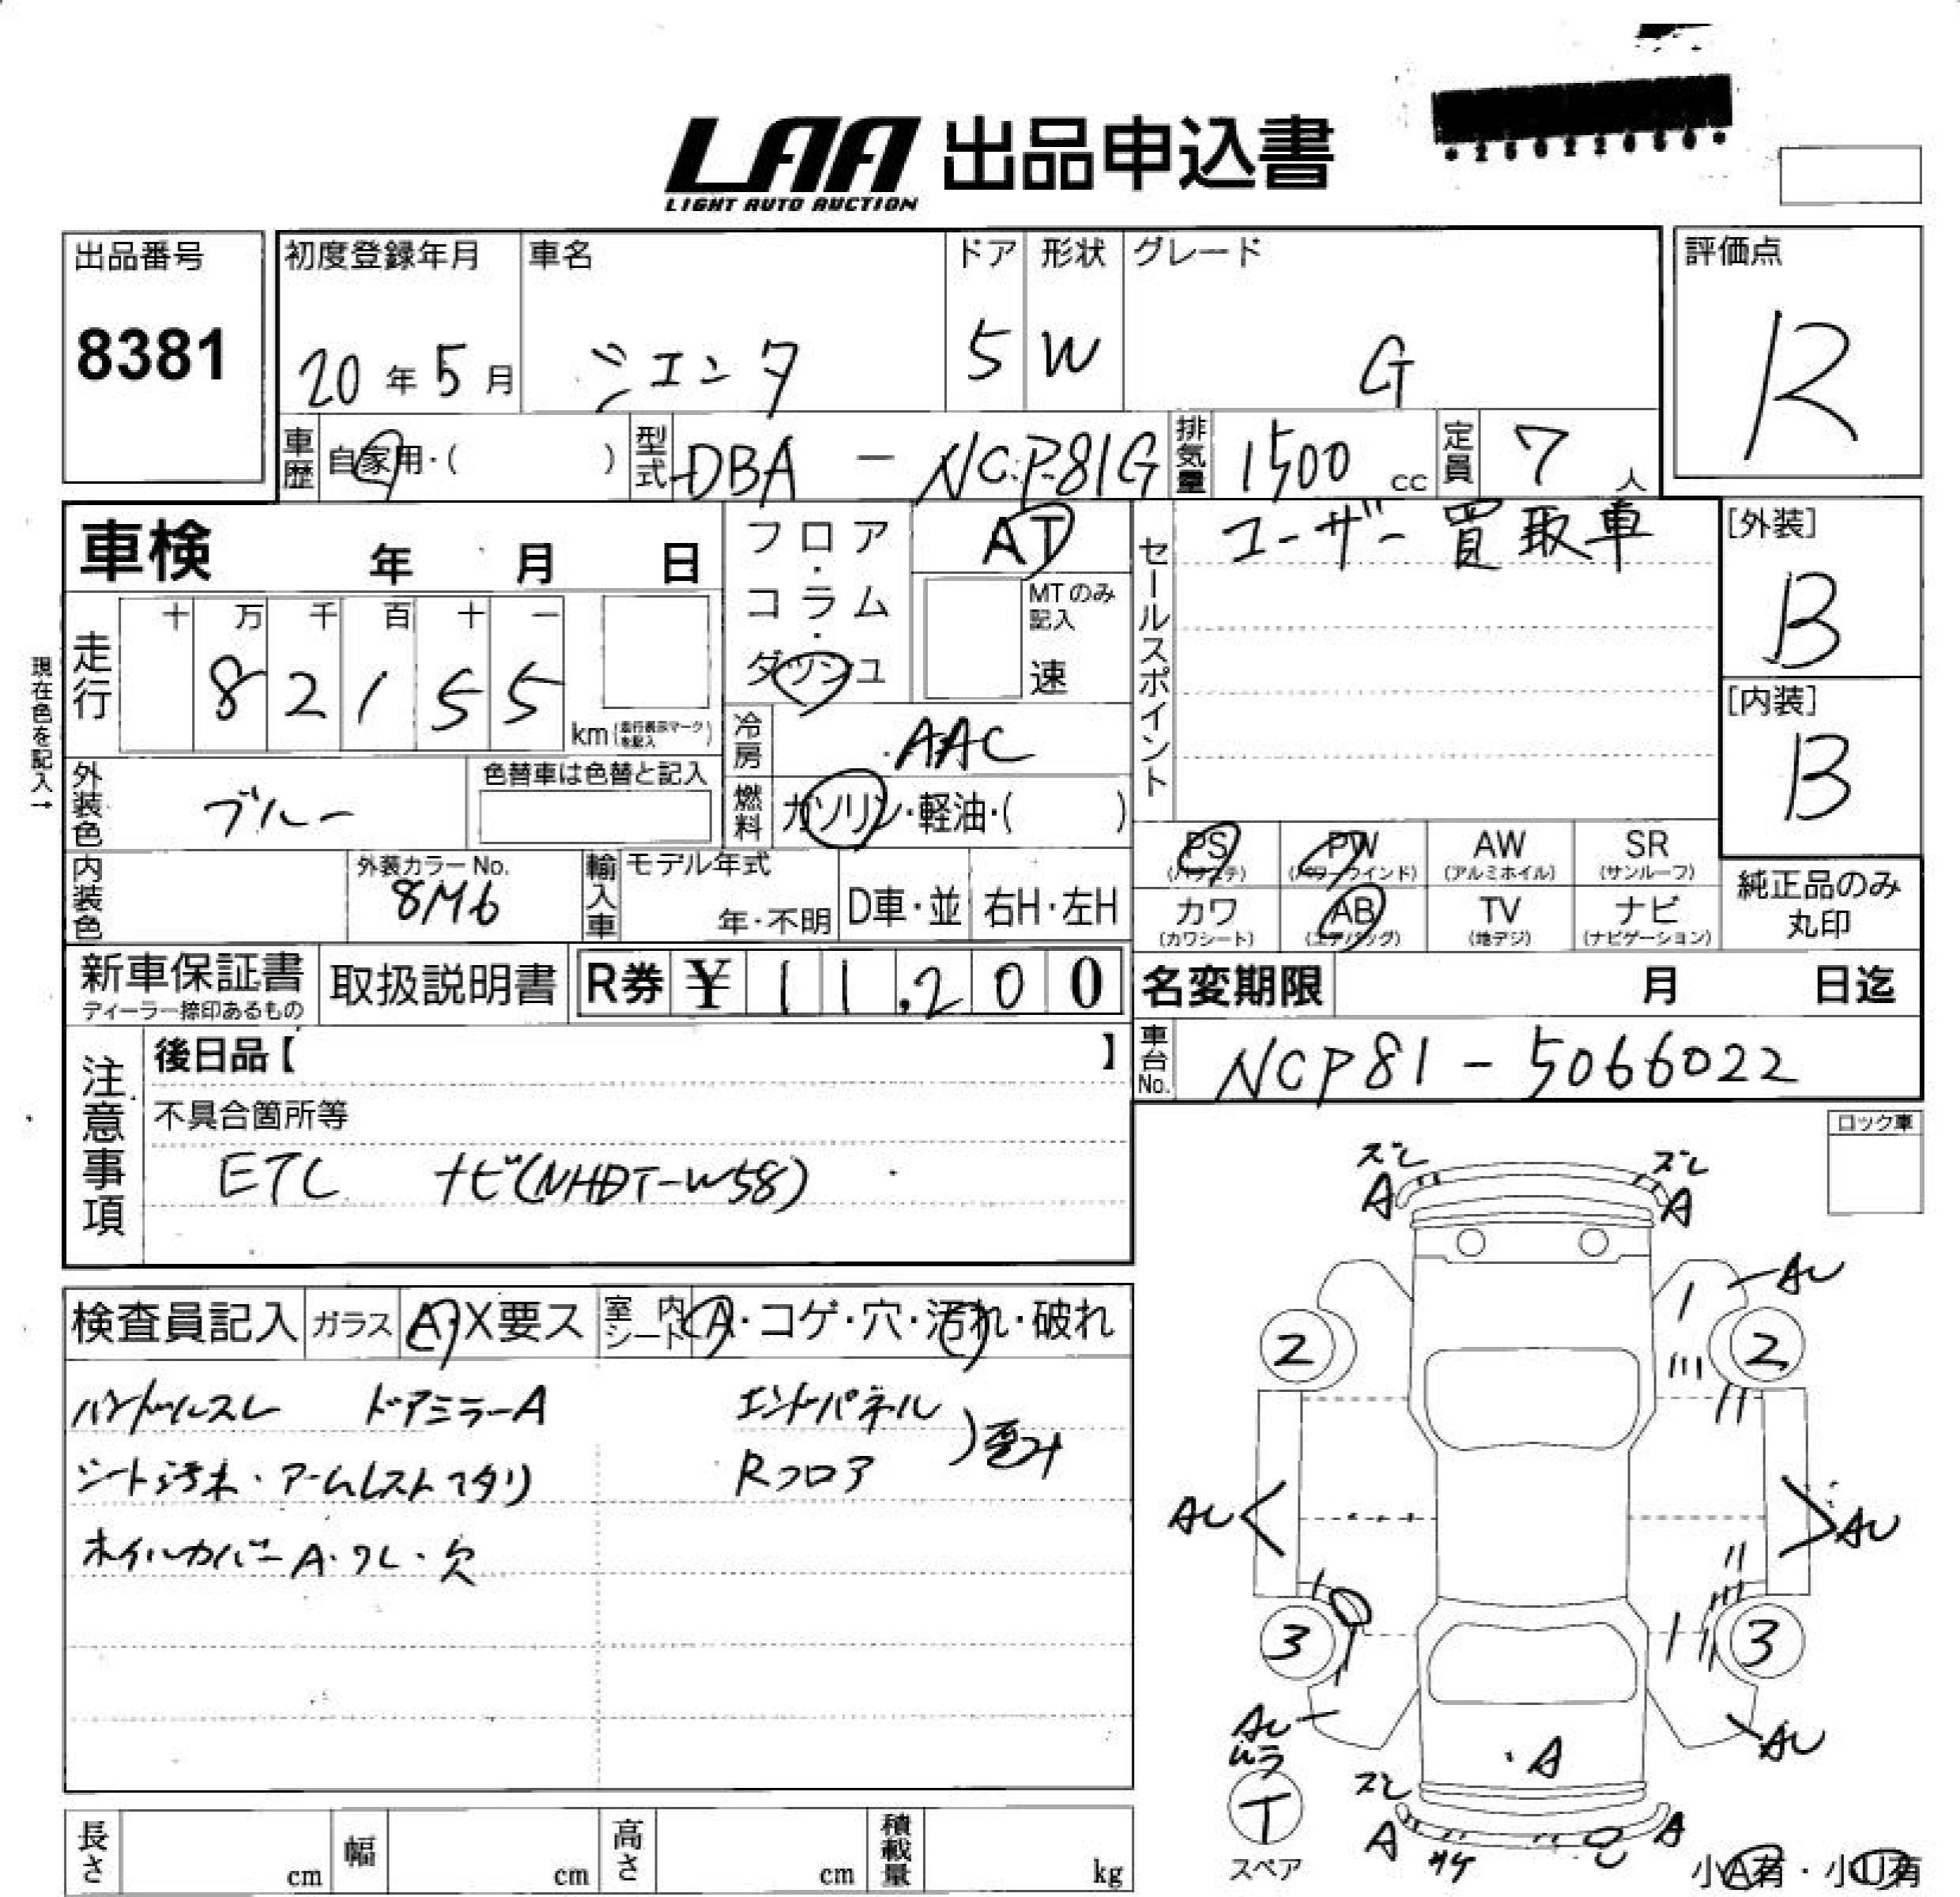 LAA 出品申込書
LIGHT AUTO AUCTION
出品番号 初度登録年月 車名 ドア 形状 グレード 評価点
8381 20年5月 シエンタ 5 W G R
車歴 自家用・( ) 型式 DBA - NCP81G 排気量 1500cc 定員 7人
車検 年 月 日
フロア・コラム・ダッシュ
AT
MTのみ記入
速
セールスポイント
ユーザー買取車
[外装]
B
[内装]
B
現在色を記入→
走行
十 万 千 百 十 一
8 2 1 5 5
km(走行表示マークを記入)
冷房 AAC
外装色 ブルー
色替車は色替と記入
燃料 ガソリン・軽油・( )
PS PW AW SR
(パワステ) (パワーウインド) (アルミホイル) (サンルーフ)
カワ AB TV ナビ
(カワシート) (エアバッグ) (地デジ) (ナビゲーション)
純正品のみ
丸印
内装色
外装カラーNo.
8M6
輸入車
モデル年式
年・不明
D車・並
右H・左H
新車保証書
ディーラー捺印あるもの
取扱説明書
R券 ¥ 11,200
名変期限 月 日迄
車台No. NCP81-5066022
注意事項
後日品【 】
不具合箇所等
ETC ナビ(NHDT-W58)
検査員記入 ガラス A・X要ス 室内シート A・コゲ・穴・汚れ・破れ
ハンドルスレ ドアミラーA エンドパネル
シート汚れ・アームレストヘタリ Rフロア )歪み
ホイルカバーA・ワレ・欠
ロック車
ズレ ズレ
A A
AU
2 2
AU AU
3 3
AU
ムラ
AU
A
ズレ
T
A A
スペア
小A有・小U有
長さ cm 幅 cm 高さ cm 積載量 kg